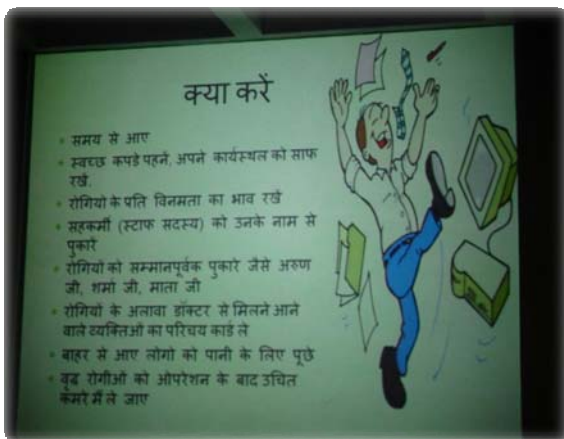 क्या करें
समय से आए
स्वच्छ कपडे पहने, अपने कार्यस्थल को साफ
रखें.
रोगियो के प्रति विनमता का भाव रखें
सहकर्मी (स्टाफ सदस्य) को उनके नाम से
पुकारें
रोगियों को सम्मानपूर्वक पुकारे जैसे अरुण
जी, शर्मा जी, माता जी
रोगियों के अलावा डॉक्टर से मिलने आने
वाले व्यक्तिओं का परिचय कार्ड ले
बाहर से आए लोगो को पानी के लिए पूछे
वृद्ध रोगीओं को ओपरेशन के बाद उचित
कमरे में ले जाए